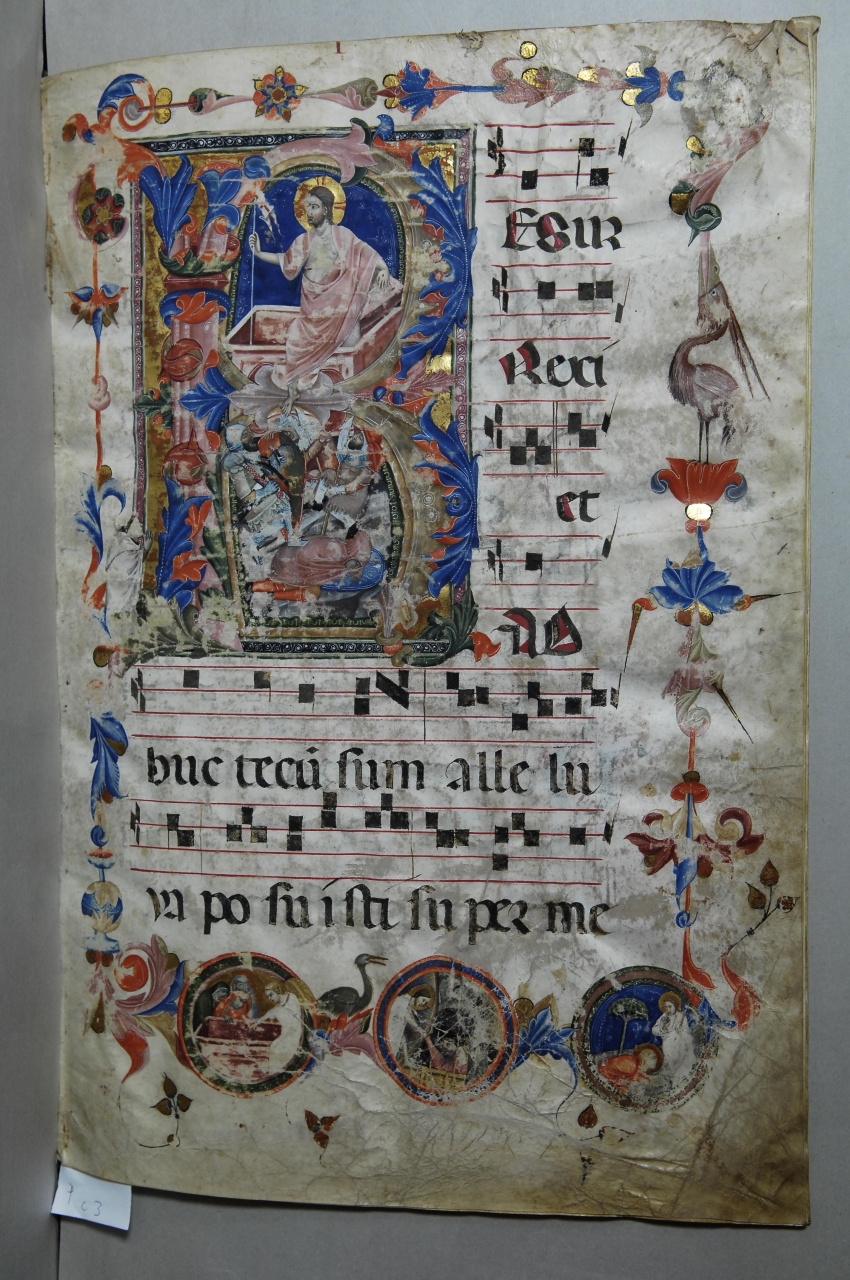 RESUR
Rexi
et
AD
huc tecū sum alle lu
ya po su i sti su per me
c3